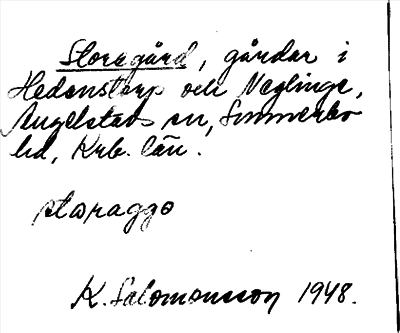 Storegård, gårdar i
Hedenstorp och Neglinge,
Angelstads sn, Sunnerbo
hd, Krb. län.
storaggo
K. Salomonsson 1948.